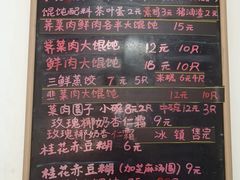 馄饨配料 茶叶蛋2元 素鸡3元 猪油渣2元
荠菜肉鲜肉各半大馄饨 15元
荠菜肉大馄饨 12元 10只
鲜肉大馄饨 16元 10只
三鲜蒸饺 7元 5只
韭菜肉大馄饨 12元 10只
菜肉圆子 小碗8元2只 中碗12元3只
玫瑰椰奶杏仁霜 9元
玫瑰椰奶杏仁 冰镇 售完
桂花赤豆糊 6元
桂花赤豆糊(加芝麻汤圆) 9元